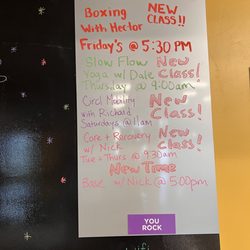 Boxing NEW
With Hector CLASS!!
Friday's @ 5:30 PM
Slow Flow New
Yoga w/ Dale Class!
Thursday @ 9:00am
Circl Mobility New
with Richard Class!
Saturdays @ 11am
Core + Recovery New
w/ Nick Class!
Tue + Thurs @ 9:30am
New Time
w/ Nick @ 5:00pm
YOU
ROCK